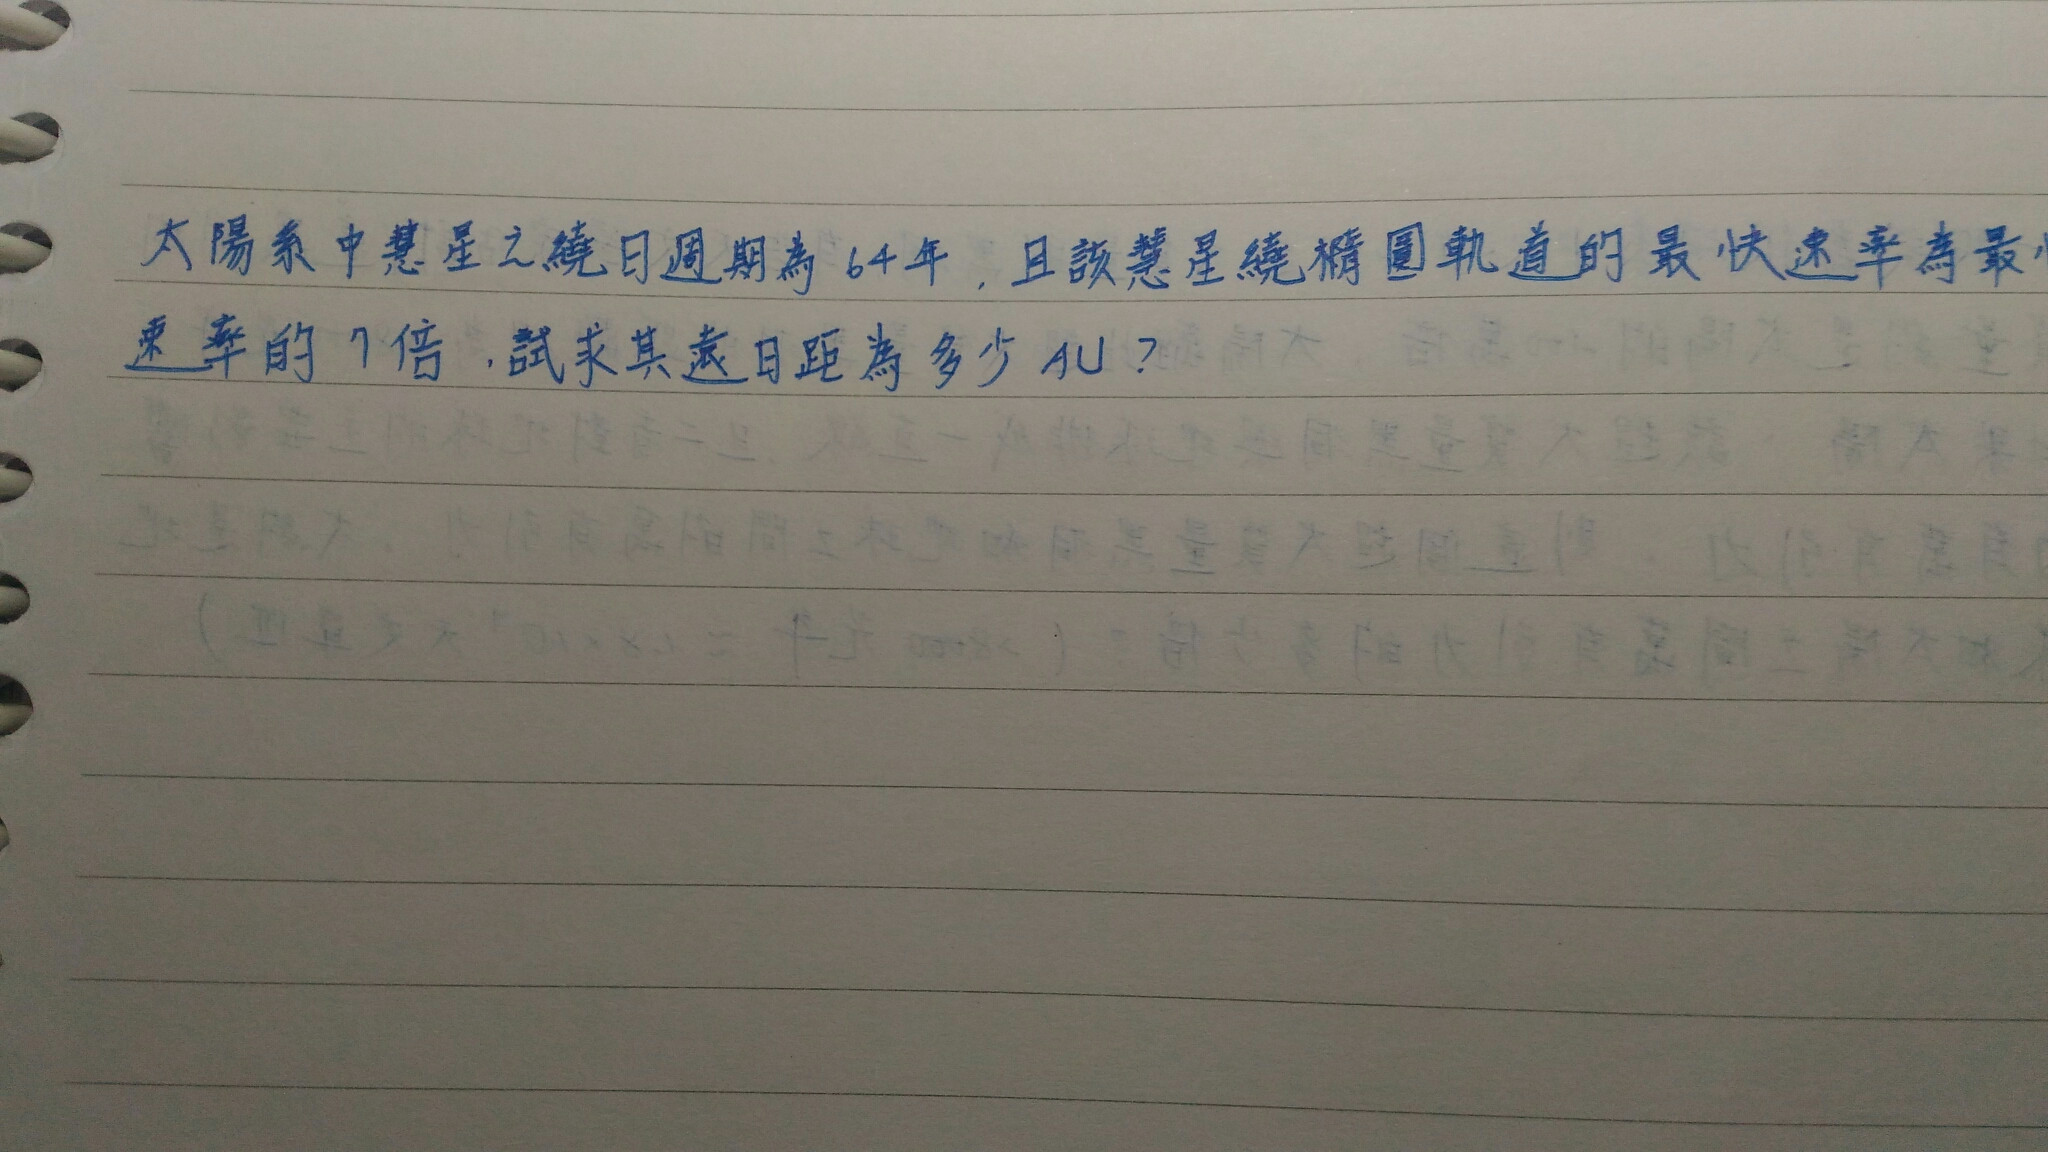 太陽系中慧星之繞日週期為64年,且該慧星繞橢圓軌道的最快速率為最
速率的7倍,試求其遠日距為多少AU?